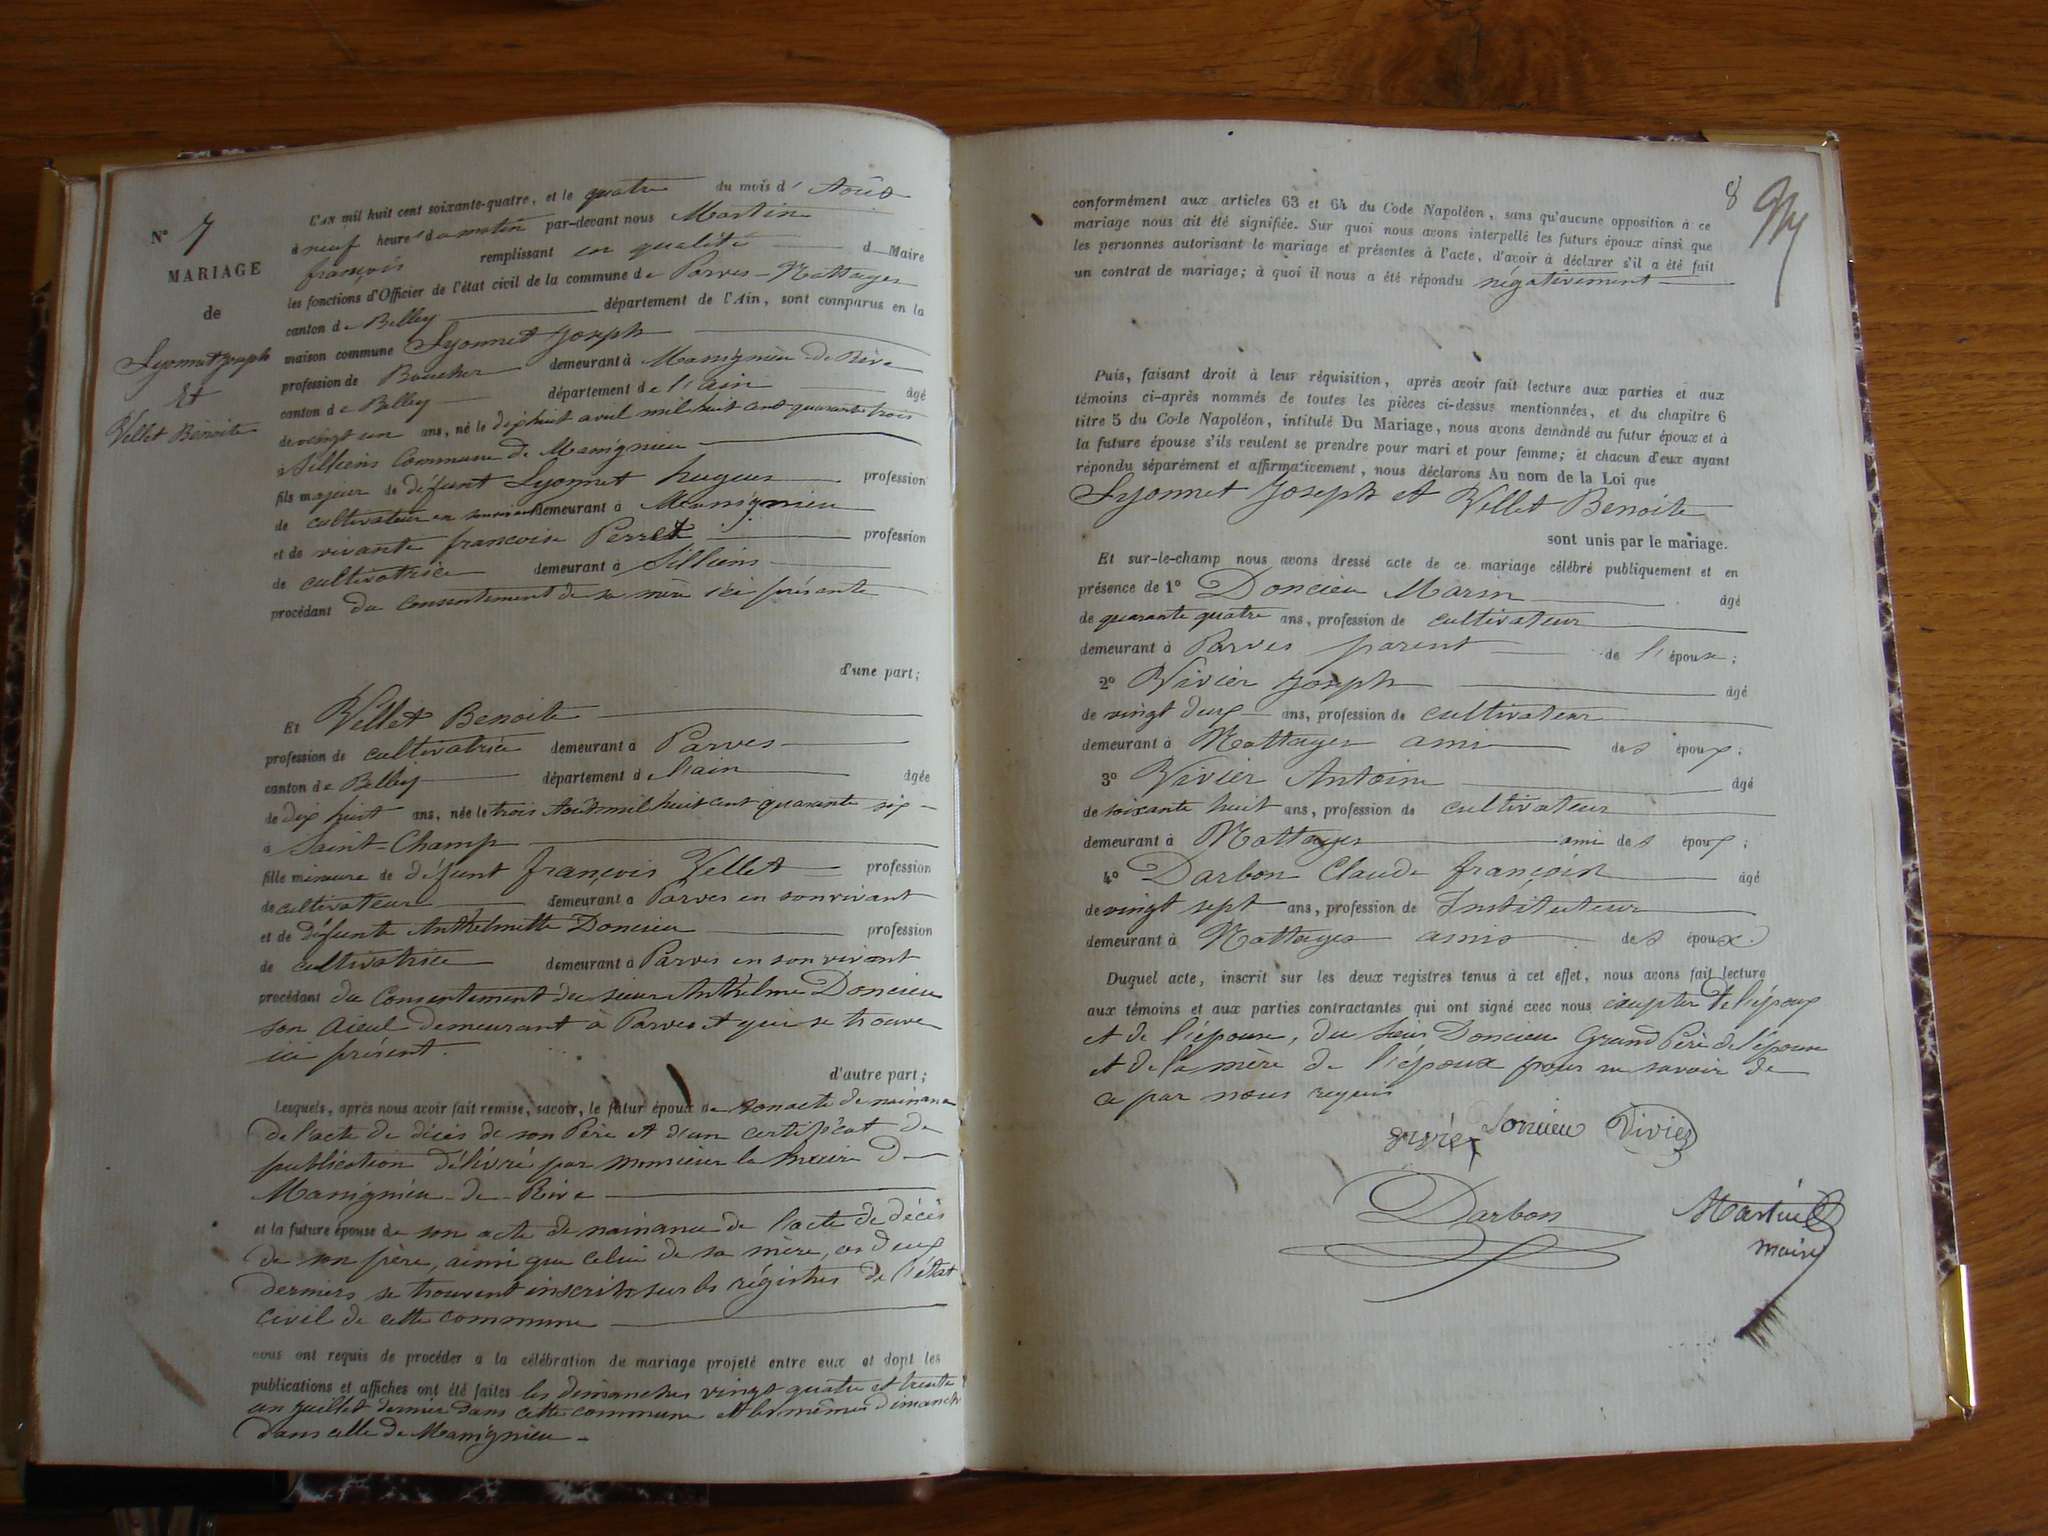 N° 7
MARIAGE
de
Lyonnet Joseph
Et
Vellet Benoite
L'AN mil huit cent soixante-quatre, et le quatre du mois d' Août
à neuf heure du matin par-devant nous Martin
françois remplissant en qualité d Maire
les fonctions d'Officier de l'état civil de la commune de Parves-Nattages
canton de Belley département de l'Ain, sont comparus en la
maison commune Lyonnet Joseph
profession de Boucher demeurant à Massignieu-de-Rive
canton de Belley département de l'ain âgé
de vingt un ans, né le dix huit avril mil huit cent quarante trois
à Silliens Commune de Massignieu
fils majeur de défunt Lyonnet hugues profession
de cultivateur en son vivant demeurant à Massignieu
et de vivante francoise Perret profession
de cultivatrice demeurant à Silliens
procédant du consentement de sa mère ici présante
d'une part;
Et Vellet Benoite
profession de cultivatrice demeurant à Parves
canton de Belley département de l'ain âgée
de dix huit ans, née le trois Août mil huit cent quarante six
à Saint-Champ
fille mineure de défunt françois Vellet profession
de cultivateur demeurant à Parves en son vivant
et de défunte Anthelmette Doncieu profession
de cultivatrice demeurant à Parves en son vivant
procédant du Consentement du sieur Anthelme Doncieu
son Aieul demeurant à Parves et qui se trouve
ici présent.
d'autre part;
Lesquels, après nous avoir fait remise, savoir, le futur époux de son acte de naissance
de l'acte de décès de son Père et d'un certificat de
publication délivré par monsieur le maire de
Massignieu-de-Rive
et la future épouse de son acte de naissance de l'acte de décès
de son père, ainsi que celui de sa mère, ces deux
derniers se trouvent inscrits sur les régistres de l'état
civil de cette commune
nous ont requis de procéder à la célébration du mariage projeté entre eux et dont les
publications et affiches ont été faites les dimanches vingt quatre et trente
un juillet dernier dans cette commune et les mêmes dimanches
dans celle de Massignieu
8
conformément aux articles 63 et 64 du Code Napoléon, sans qu'aucune opposition à ce
mariage nous ait été signifiée. Sur quoi nous avons interpellé les futurs époux ainsi que
les personnes autorisant le mariage et présentes à l'acte, d'avoir à déclarer s'il a été fait
un contrat de mariage; à quoi il nous a été répondu négativement
Puis, faisant droit à leur réquisition, après avoir fait lecture aux parties et aux
témoins ci-après nommés de toutes les pièces ci-dessus mentionnées, et du chapitre 6
titre 5 du Code Napoléon, intitulé Du Mariage, nous avons demandé au futur époux et à
la future épouse s'ils veulent se prendre pour mari et pour femme; et chacun d'eux ayant
répondu séparément et affirmativement, nous déclarons Au nom de la Loi que
Lyonnet Joseph et Vellet Benoite
sont unis par le mariage.
Et sur-le-champ nous avons dressé acte de ce mariage célébré publiquement et en
présence de 1° Doncieu Marin âgé
de quarante quatre ans, profession de cultivateur
demeurant à Parves parent de l'épouse;
2° Vivier Joseph âgé
de vingt deux ans, profession de cultivateur
demeurant à Nattages ami des époux;
3° Vivier Antoine âgé
de soixante huit ans, profession de cultivateur
demeurant à Nattages ami des époux;
4° Darbon Claude françois âgé
de vingt sept ans, profession de Instituteur
demeurant à Nattages amis des époux.
Duquel acte, inscrit sur les deux registres tenus à cet effet, nous avons fait lecture
aux témoins et aux parties contractantes qui ont signé avec nous excepter de l'époux
et de l'épouse, du sieur Doncieu Grand Père de l'épouse
et de la mère de l'époux pour ne savoir de
ce par nous requis
vivier Doncieu Vivier
Darbon Martin
maire